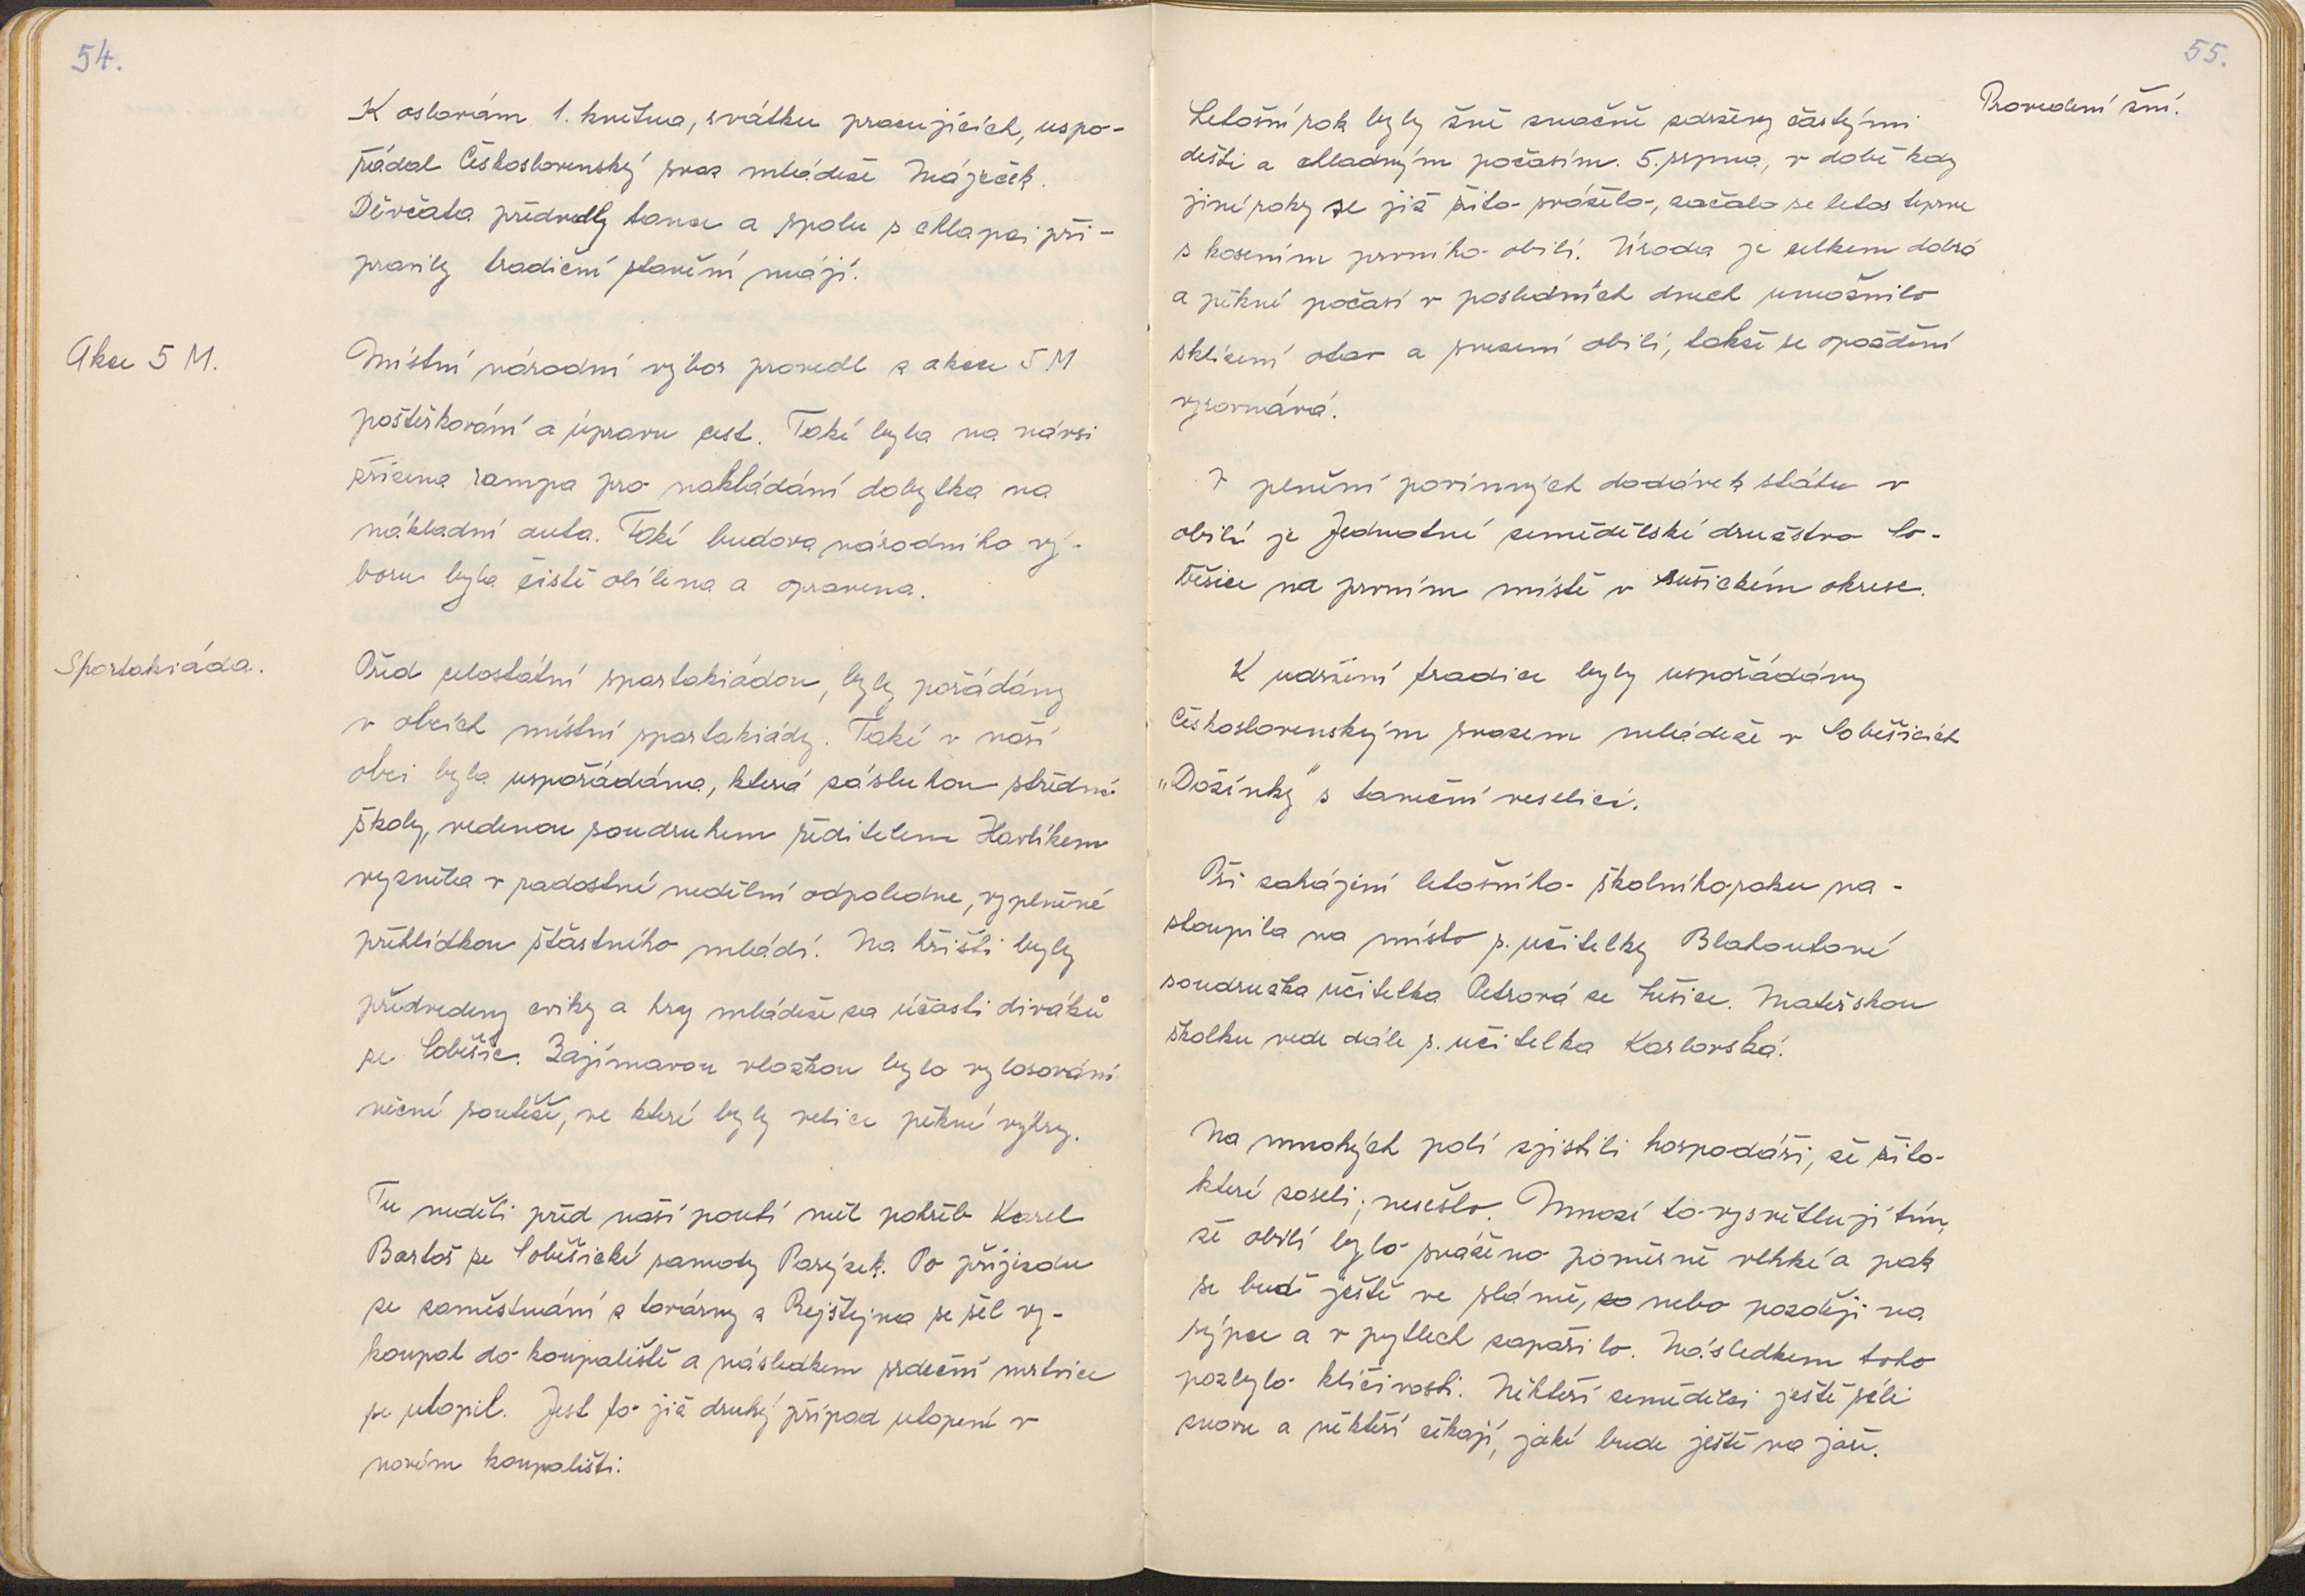 54.
K oslavám 1. května, svátku pracujících, uspo-
řádal Československý svaz mládeže Máječek.
Děvčata předvedly tance a spolu s chlapci při-
pravily tradiční stavění májí.
Akce 5 M.
Místní národní výbor provedl z akce 5M
poštěrkování a úpravu cest. Také byla na návsi
zřízena rampa pro nakládání dobytka na
nákladní auta. Také budova národního vý-
boru byla čistě obílena a opravena.
Spartakiáda.
Před celostátní spartakiádou, byly pořádány
v obcích místní spartakiády. Také v naší
obci byla uspořádána, která zásluhou střední
školy, vedenou soudruhem ředitelem Havlíkem
vyzněla v radostné nedělní odpoledne, vyplněné
přehlídkou šťastného mládí. Na hřišti byly
předvedeny cviky a hry mládeže za účasti diváků
ze Soběšic. Zajímavou vložkou bylo vylosování
věcné soutěže, ve které byly velice pěkné výhry.
Tu neděli před naší poutí měl pohřeb Karel
Bartoš ze Soběšické samoty Parýzek. Po příjezdu
ze zaměstnání z továrny z Rejštejna se šel vy-
koupat do koupaliště a následkem srdeční mrtvice
se utopil. Jest to již druhý případ utopení v
novém koupališti.
55.
Provedení žní.
Letošní rok byly žně značně zdrženy častými
dešti a chladným počasím. 5. srpna, v době kdy
jiné roky se již žito sváželo, začalo se letos teprve
s kosením prvního obilí. Úroda je celkem dobrá
a pěkné počasí v posledních dnech umožnilo
sklízení otav a svezení obilí, takže se opoždění
vyrovnává.
V plnění povinných dodávek státu v
obilí je Jednotné zemědělské družstvo So-
běšice na prvním místě v sušickém okrese.
K udržení tradice byly uspořádány
Československým svazem mládeže v Soběšicích
„Dožínky" s taneční veselicí.
Při zahájení letošního školního roku na-
stoupila na místo s. učitelky Blahoutové
soudružka učitelka Petrová ze Sušice. Mateřskou
školku vede dále s. učitelka Karlovská.
Na mnohých polí zjistili hospodáři, že žito
které zaseli, nesešlo. Mnozí to vysvětlují tím,
že obilí bylo sváženo poměrně vlhké a pak
se buď ještě ve slámě, za nebo později na
sýpce a v pytlech zapářilo. Následkem toho
pozbylo klíčivosti. Někteří zemědělci ještě seli
znovu a někteří čekají, jaké bude ještě na jaře.